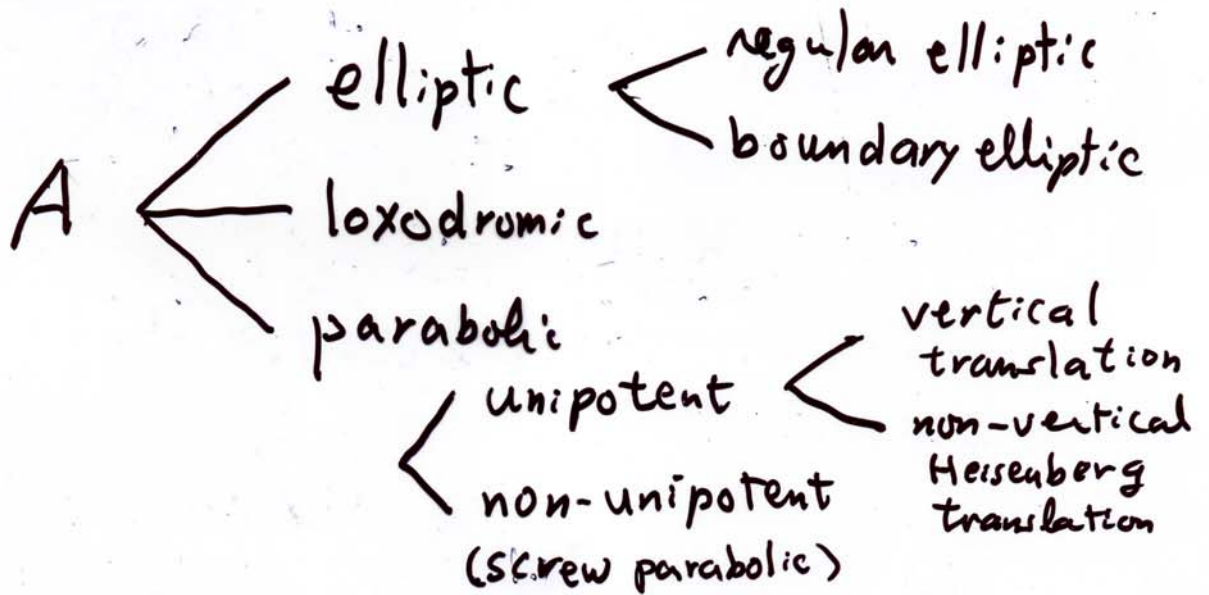 elliptic
regular elliptic
boundary elliptic
A
loxodromic
parabolic
unipotent
vertical
translation
non-vertical
Heisenberg
translation
non-unipotent
(screw parabolic)